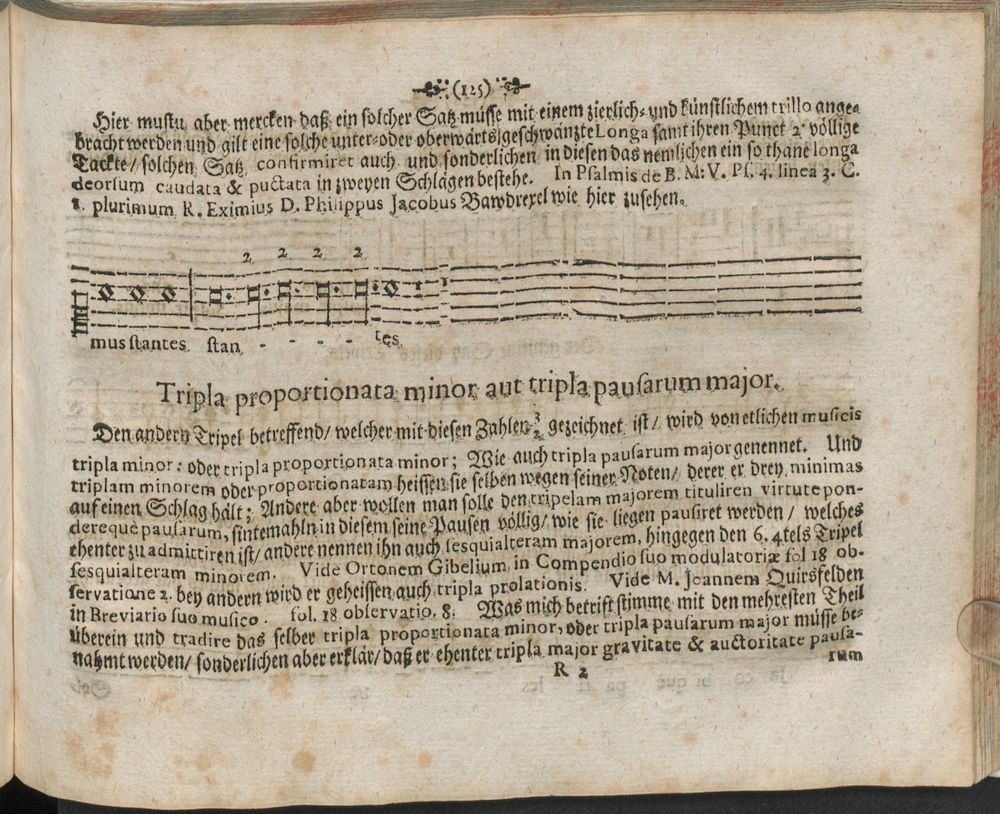 (125)
Hier mustu aber mercken daß ein solcher Satz müsse mit einem zierlich- und künstlichem trillo ange-
bracht werden und gilt eine solche unter- oder oberwärts geschwäntzte Longa samt ihren Punct 2 völlige
Tackte / solchen Satz confirmiret auch und sonderlichen in diesen das nemlichen ein so thane longa
deorsum caudata & puctata in zweyen Schlägen bestehe. In Psalmis de B. M: V. Ps. 4. linea 3. C.
1. plurimum R. Eximius D. Philippus Jacobus Bawdrexel wie hier zusehen.
2 2 2 2
mus stantes stan - - - - tes.
Tripla proportionata minor aut tripla pausarum major.
Den andern Tripel betreffend / welcher mit diesen Zahlen 3/2 gezeichnet ist / wird von etlichen musicis
tripla minor: oder tripla proportionata minor; Wie auch tripla pausarum major genennet. Und
triplam minorem oder proportionatam heissen sie selben wegen seiner Noten / derer er drey minimas
auf einen Schlag hält; Andere aber wollen man solle den tripelam majorem tituliren virtute pon-
dereque pausarum, sintemahln in diesem seine Pausen völlig / wie sie liegen pausiret werden / welches
ehenter zu admittiren ist / andere nennen ihn auch sesquialteram majorem, hingegen den 6. 4tels Tripel
sesquialteram minorem. Vide Ortonem Gibelium in Compendio suo modulatoriæ fol 18 ob-
servatione 2. bey andern wird er geheissen auch tripla prolationis. Vide M. Joannem Quirsfelden
in Breviario suo musico. fol. 18 observatio. 8. Was mich betrift stimme mit den mehresten Theil
überein und tradire das selber tripla proportionata minor, oder tripla pausarum major müsse be-
nahmt werden / sonderlichen aber erklär / daß er ehenter tripla major gravitate & auctoritate pausa-
R 2
rum